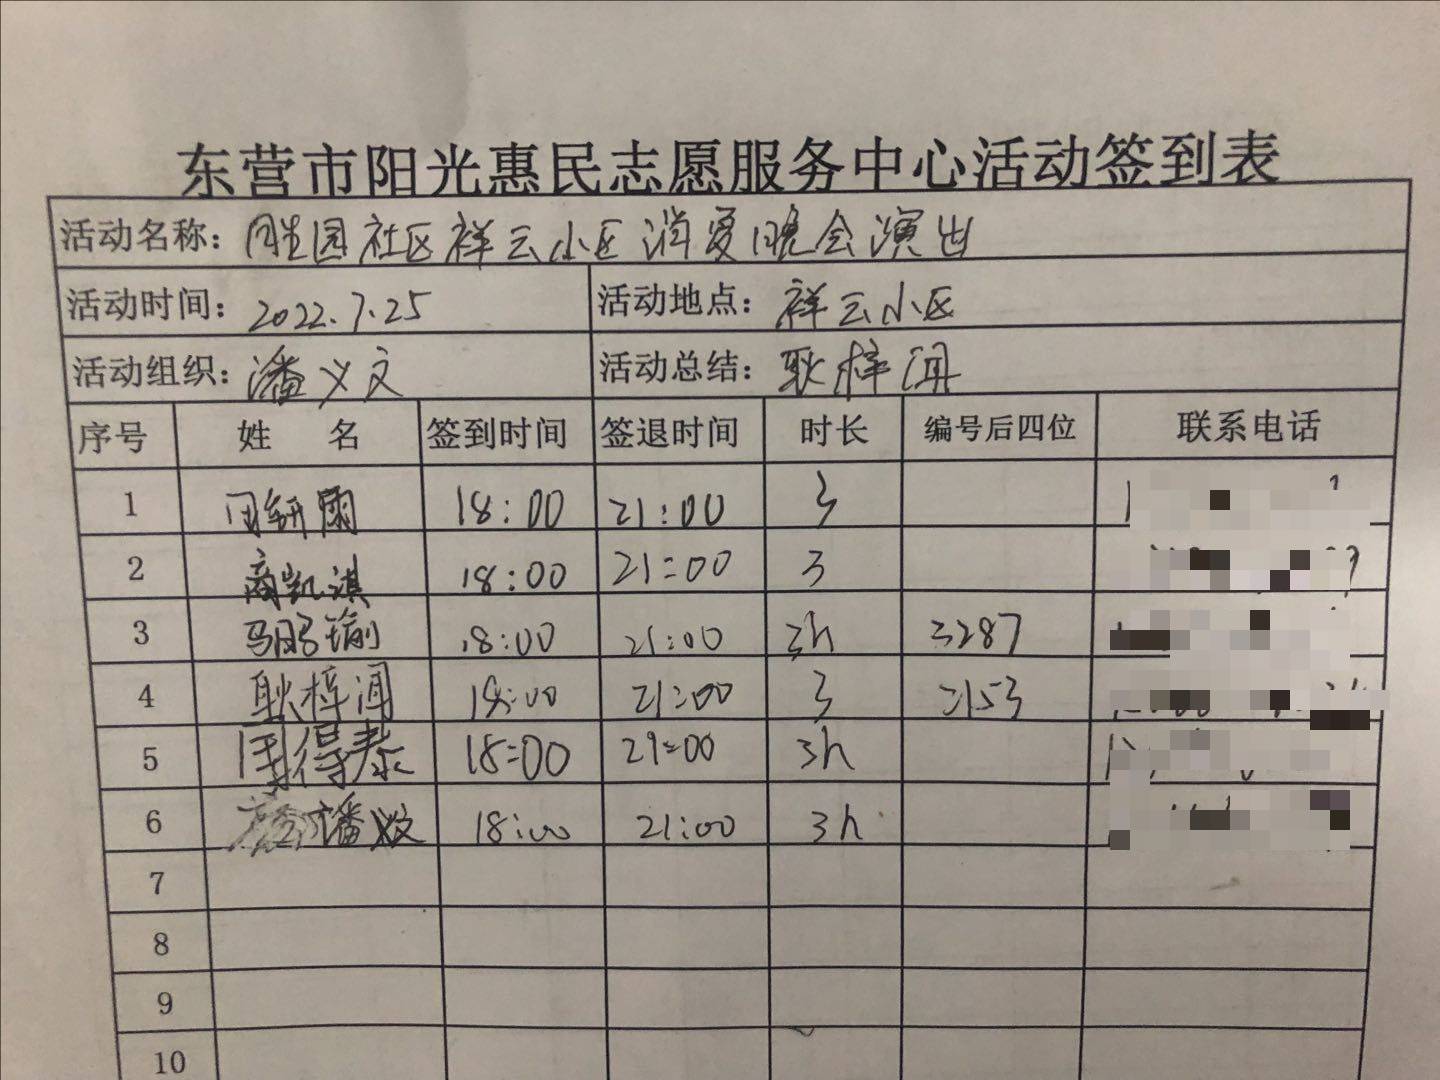 东营市阳光惠民志愿服务中心活动签到表
活动名称：胜园社区祥云小区消夏晚会演出
活动时间：2022.7.25 活动地点：祥云小区
活动组织：潘义文 活动总结：耿梓涓
序号 姓 名 签到时间 签退时间 时长 编号后四位 联系电话
1 18:00 21:00 3
2 商凯淇 18:00 21:00 3
3 马鹏瑜 18:00 21:00 3h 3287
4 耿梓涓 18:00 21:00 3 2153
5 得泰 18:00 21:00 3h
6 潘义文 18:00 21:00 3h
7
8
9
10